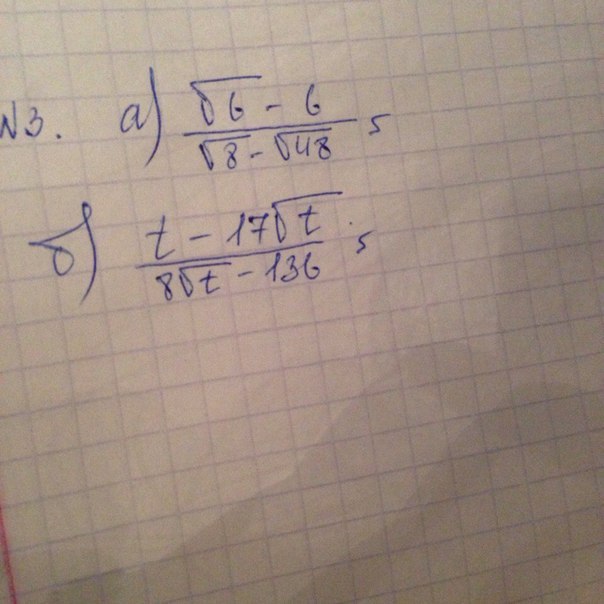 №3. а) (√6 - 6)/(√8 - √48) ;
б) (t - 17√t)/(8√t - 136) ;